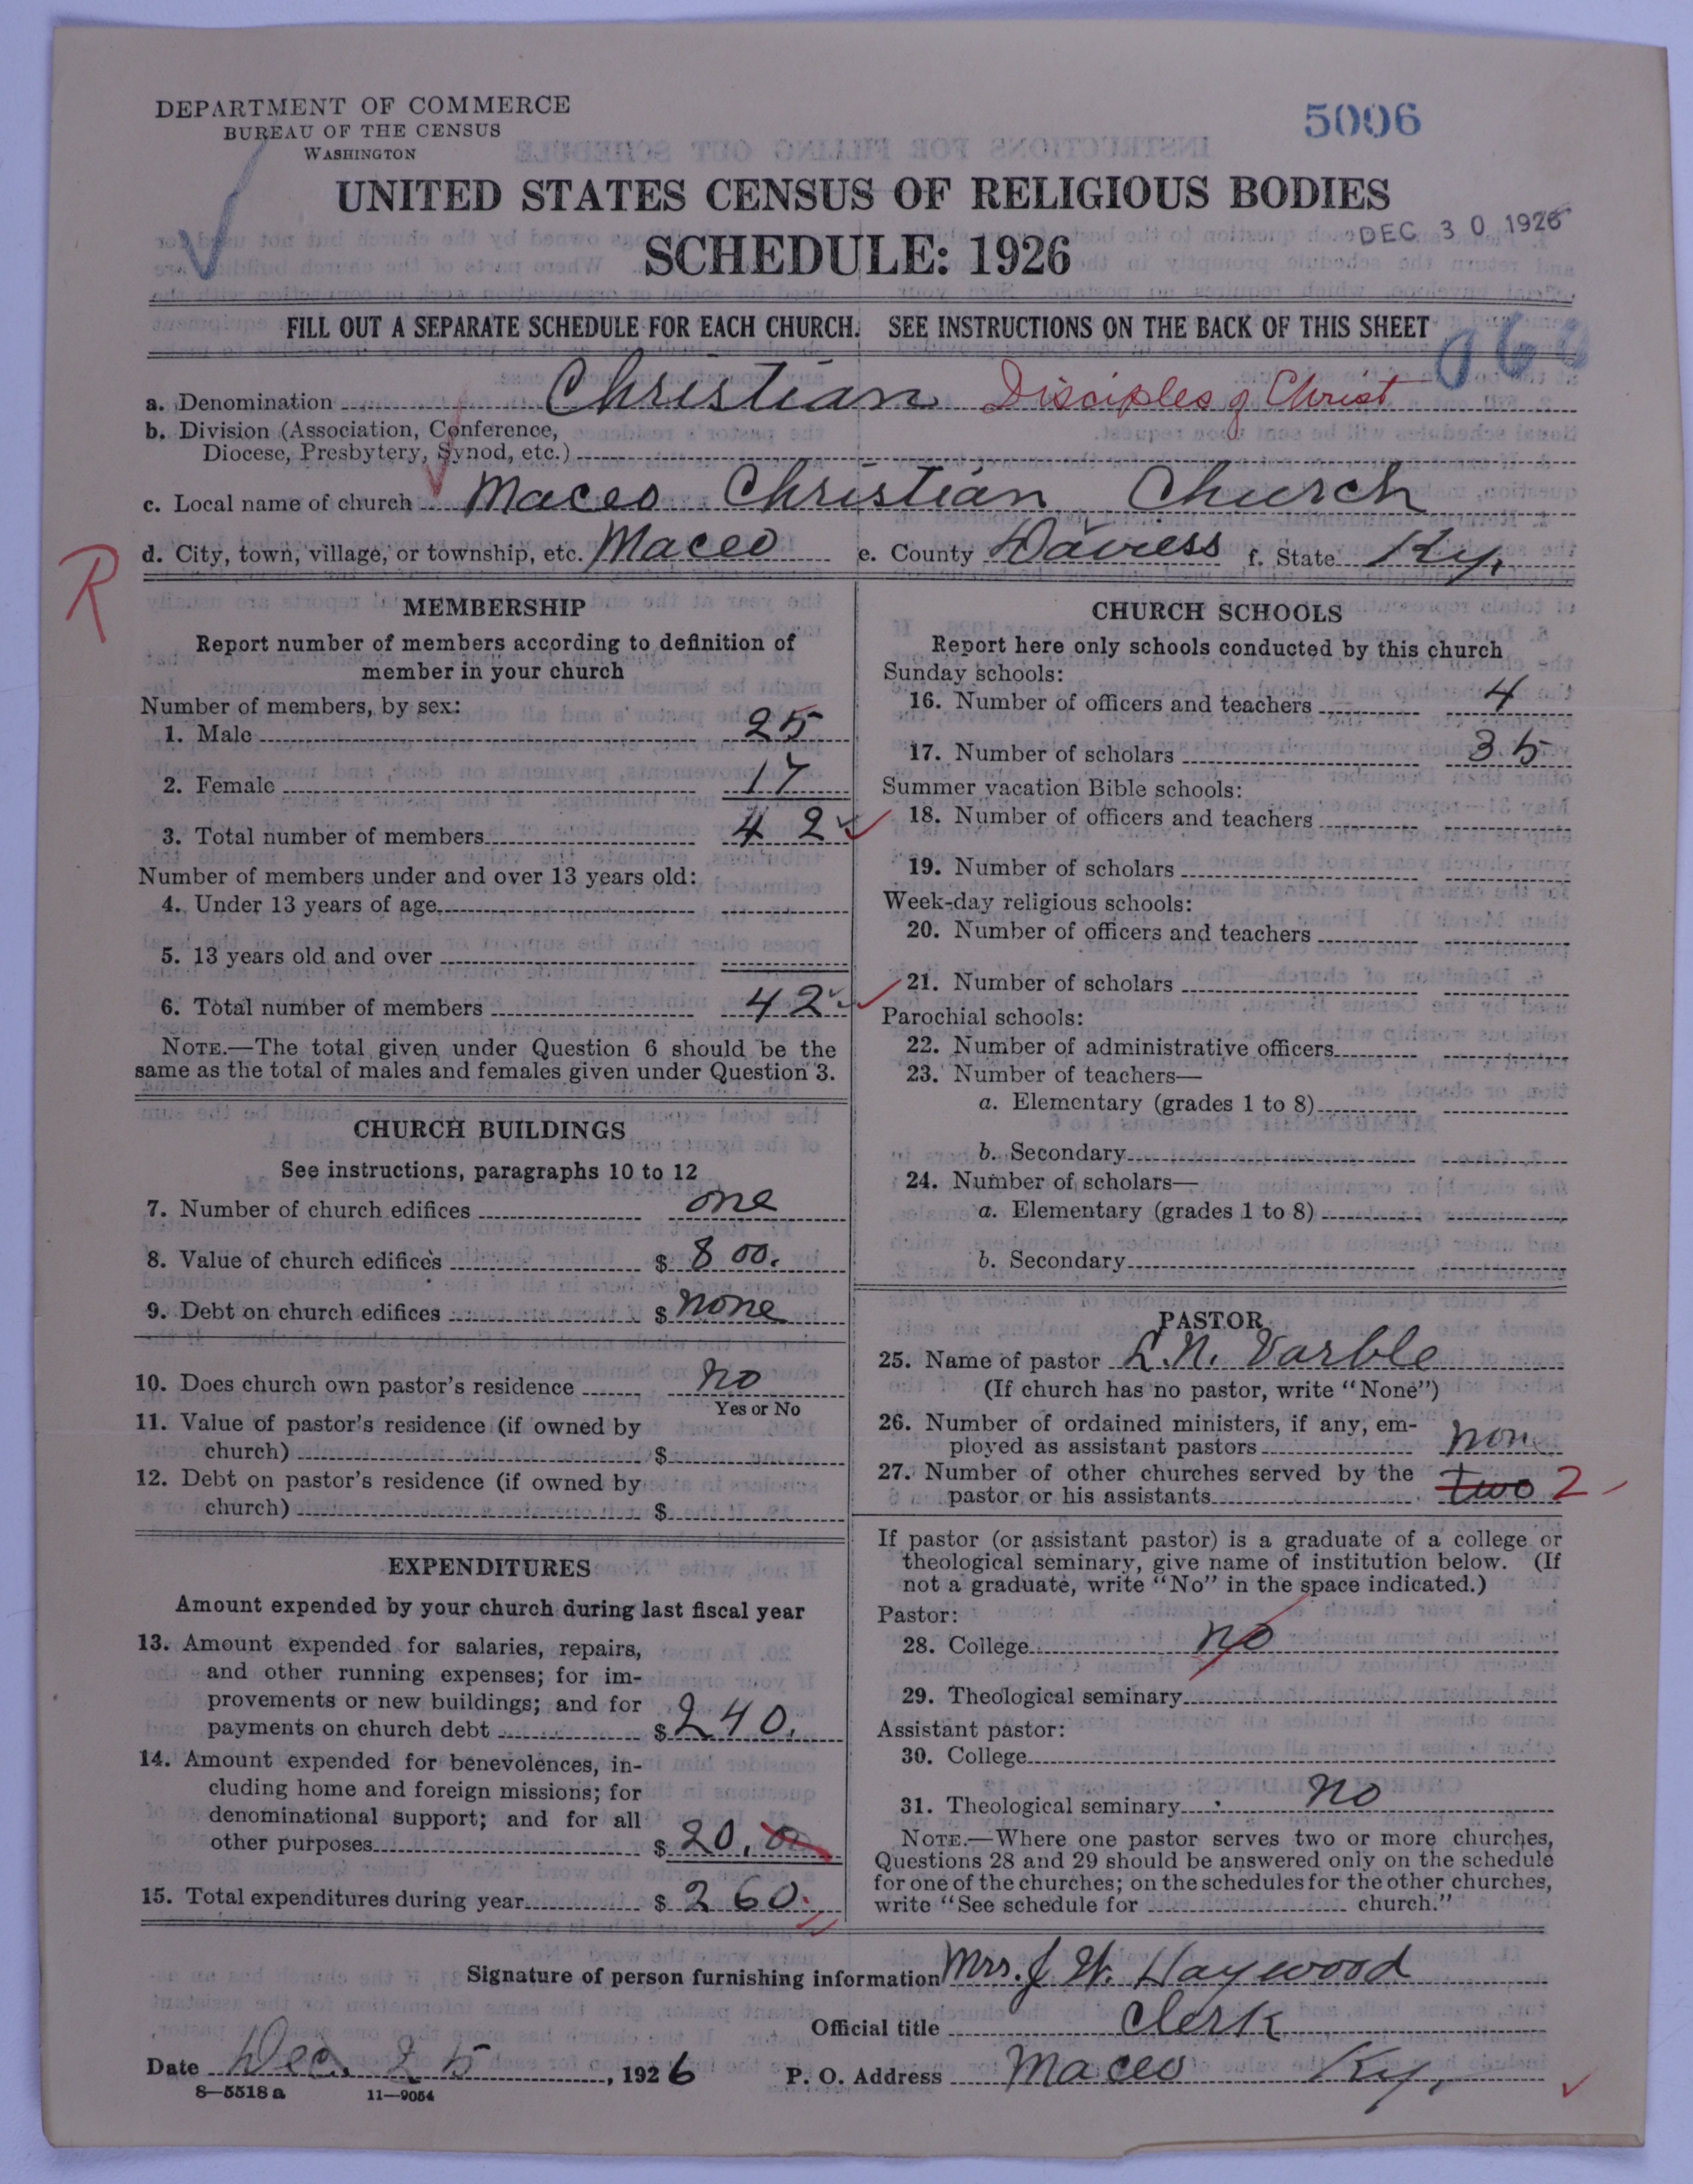 DEPARTMENT OF COMMERCE
BUREAU OF THE CENSUS
WASHINGTON
5006
UNITED STATES CENSUS OF RELIGIOUS BODIES
SCHEDULE: 1926
DEC 30 1926
FILL OUT A SEPARATE SCHEDULE FOR EACH CHURCH. SEE INSTRUCTIONS ON THE BACK OF THIS SHEET
a. Denomination Christian Disciples of Christ
b. Division (Association, Conference,
Diocese, Presbytery, Synod, etc.)
c. Local name of church Maceo Christian Church
d. City, town, village, or township, etc. Maceo e. County Daviess f. State Ky.
R
MEMBERSHIP
Report number of members according to definition of
member in your church
Number of members, by sex:
1. Male 25
2. Female 17
3. Total number of members 42
Number of members under and over 13 years old:
4. Under 13 years of age
5. 13 years old and over
6. Total number of members 42
NOTE.—The total given under Question 6 should be the
same as the total of males and females given under Question 3.
CHURCH BUILDINGS
See instructions, paragraphs 10 to 12
7. Number of church edifices one
8. Value of church edifices $ 800.
9. Debt on church edifices $ none
10. Does church own pastor's residence no
Yes or No
11. Value of pastor's residence (if owned by
church) $
12. Debt on pastor's residence (if owned by
church) $
EXPENDITURES
Amount expended by your church during last fiscal year
13. Amount expended for salaries, repairs,
and other running expenses; for im-
provements or new buildings; and for
payments on church debt $ 240.
14. Amount expended for benevolences, in-
cluding home and foreign missions; for
denominational support; and for all
other purposes $ 20.00
15. Total expenditures during year $ 260.
CHURCH SCHOOLS
Report here only schools conducted by this church
Sunday schools:
16. Number of officers and teachers 4
17. Number of scholars 35
Summer vacation Bible schools:
18. Number of officers and teachers
19. Number of scholars
Week-day religious schools:
20. Number of officers and teachers
21. Number of scholars
Parochial schools:
22. Number of administrative officers
23. Number of teachers—
a. Elementary (grades 1 to 8)
b. Secondary
24. Number of scholars—
a. Elementary (grades 1 to 8)
b. Secondary
PASTOR
25. Name of pastor L. N. Varble
(If church has no pastor, write "None")
26. Number of ordained ministers, if any, em-
ployed as assistant pastors none
27. Number of other churches served by the
pastor or his assistants two 2
If pastor (or assistant pastor) is a graduate of a college or
theological seminary, give name of institution below. (If
not a graduate, write "No" in the space indicated.)
Pastor:
28. College no
29. Theological seminary
Assistant pastor:
30. College
31. Theological seminary no
NOTE.—Where one pastor serves two or more churches,
Questions 28 and 29 should be answered only on the schedule
for one of the churches; on the schedules for the other churches,
write "See schedule for church."
Signature of person furnishing information Mrs. J W. Haywood
Official title Clerk
Date Dec. 25, 1926 P. O. Address Maceo Ky.
8—5518 a 11—9054